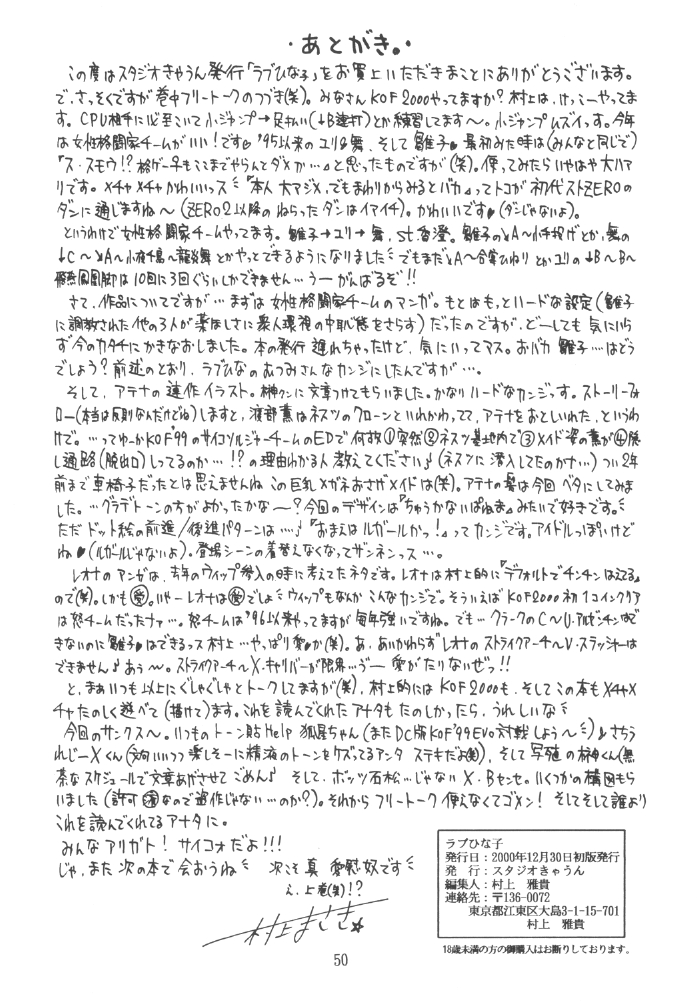 ・あとがき。・
この度はスタジオきゃうん発行「ラブひな子」をお買上いただきまことにありがとうございます。
で、さっそくですが巻中フリートークのつづき(笑)。みなさんKOF2000やってますか?村上は、けっこーやってま
す。CPU相手に小ジャンプ→足払い(↓B連打)とか練習してます〜。小ジャンプムズイっす。今年
は女性格闘家チームがいい!です♥'95以来のユリ&舞、そして雛子♥最初みた時は(みんなと同じで)
「ス・スモウ!?格ゲー子もここまでやらんとダメか…」と思ったものですが(笑)。使ってみたらいやはや大ハア
リです。メチャメチャかわいいっス「本人 大マジメ、でもまわりからみるとバカ」ってトコが初代ストZEROの
ダンに通じますね〜(ZERO2以降のねらったダンはイマイチ)。かわいいです♥(ダンじゃないよ)。
というわけで女性格闘家チームやってます。雛子→ユリ→舞、st.香澄。雛子の
とかやっとできるようになりました
は10回に3回ぐらいしかできません…うーがんばるぞ!!
さて、作品についてですが…まずは女性格闘家チームのマンガ。もとはもっとハードな設定(雛子
に調教された他の3人が薬ほしさに衆人環視の中恥態をさらす)だったのですが、どーしても気にいら
ず今のカタチにかきなおしました。本の発行 遅れちゃったけど、気にいってマス。おバカ雛子…はどう
でしょう?前述のとおり、ラブひなのあつみさんなカンジにしたんですが…。
そして、アテナの連作イラスト。榊クンに文章つけてもらいました。かなりハードなカンジっす。ストーリーフォ
ロー(本当は反則なんだけどね)しますと、渡部薫はネスツのクローンといれかわってて、アテナをおとしいれた、というわ
けで。…ってゆーかKOF'99のサイコソルジャーチームのEDで何故①突然②ネスツ基地内で③メイド姿の薫が④脱
し通路(脱出口)しってるのか…!?の理由わかる人教えてください♪(ネスツに潜入してたのか?…)つい2年
前まで車椅子だったとは思えませんねこの巨乳メガネおさげメイドは(笑)。アテナの髪は今回ベタにしてみま
した。…グラデトーンの方がよかったかな〜?今回のデザインは「ちゅうかないぱねま」みたいで好きです。
ただドット絵の前進/後進パターンは…♪「おまえはルガールかっ!」ってカンジです。アイドルっぽいけど
ね♥(ルガールじゃないよ)。登場シーンの着替えなくなってザンネンっス…。
レオナのマンガは、去年のウィップ参入の時に考えてたネタです。レオナは村上的に「デフォルトでチンチンはえてる」
ので(笑)。しかも。いやーレオナはでしょウィップもなんかこんなカンジで。そういえばKOF2000初1コインクリア
は怒チームだったナァ…。怒チームは'96以来やってますが毎年強いですね。でも…クラークのC〜U.アルゼンチンはで
きないのに雛子♥はできるっス村上…やっぱり愛♥か(笑)。あ、あいかわらずレオナのストライクアーチ〜V・スラッシャーは
できません♪あぅ〜。ストライクアーチ〜X.キャリバーが限界…う゛ー愛がたりないぜっ!!
と、まぁいつも以上にぐしゃぐしゃとトークしてますが(笑)、村上的にはKOF2000も、そしてこの本もメチャメ
チャたのしく遊べて(描けて)ます。これを読んでくれたアナタもたのしかったら、うれしいな
今回のサンクス〜。いつものトーン貼Help 狐呂ちゃん(またDC版KOF'99Evo対戦しよう〜)♪さちう
れじーXくん(文句いいつつ楽しそーに精液のトーンをケズってるアンタ ステキだよ(笑))、そして写植の榊くん(無
茶なスケジュールで文章あげさせてごめん♪ そして、ボッツ石松…じゃないX・Bセンセ。いくつかの構図もら
いました(許可済なので盗作じゃない…のか?)。それからフリートーク使えなくてゴメン!そしてそして誰より
これを読んでくれてるアナタに。
みんなアリガト!サイコォだよ!!!
じゃ、また次の本で会おうね 次こそ真・愛慰奴です
え、上巻(笑)!?
村上まさき☆
ラブひな子
発行日:2000年12月30日初版発行
発 行:スタジオきゃうん
編集人:村上 雅貴
連絡先:〒136-0072
東京都江東区大島3-1-15-701
村上 雅貴
18歳未満の方の御購入はお断りしております。
50